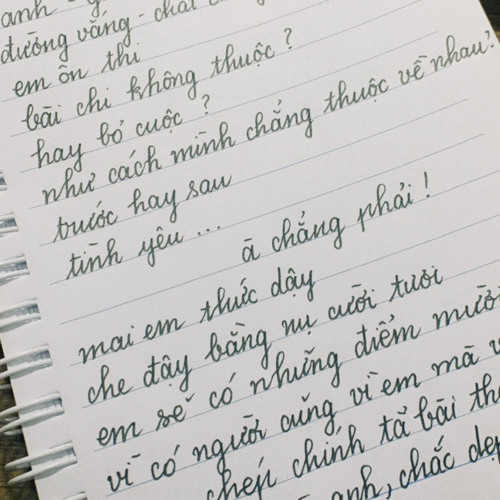 anh -
đường vắng - chai
em ôn thi
bài chi không thuộc ?
hay bỏ cuộc ?
như cách mình chẳng thuộc về nhau?
trước hay sau
tình yêu ...
à chẳng phải !
mai em thức dậy
che đậy bằng nụ cười tươi
em sẽ có những điểm mười
vì có người cũng vì em mà
chép chính tả bài
anh, chắc đẹp